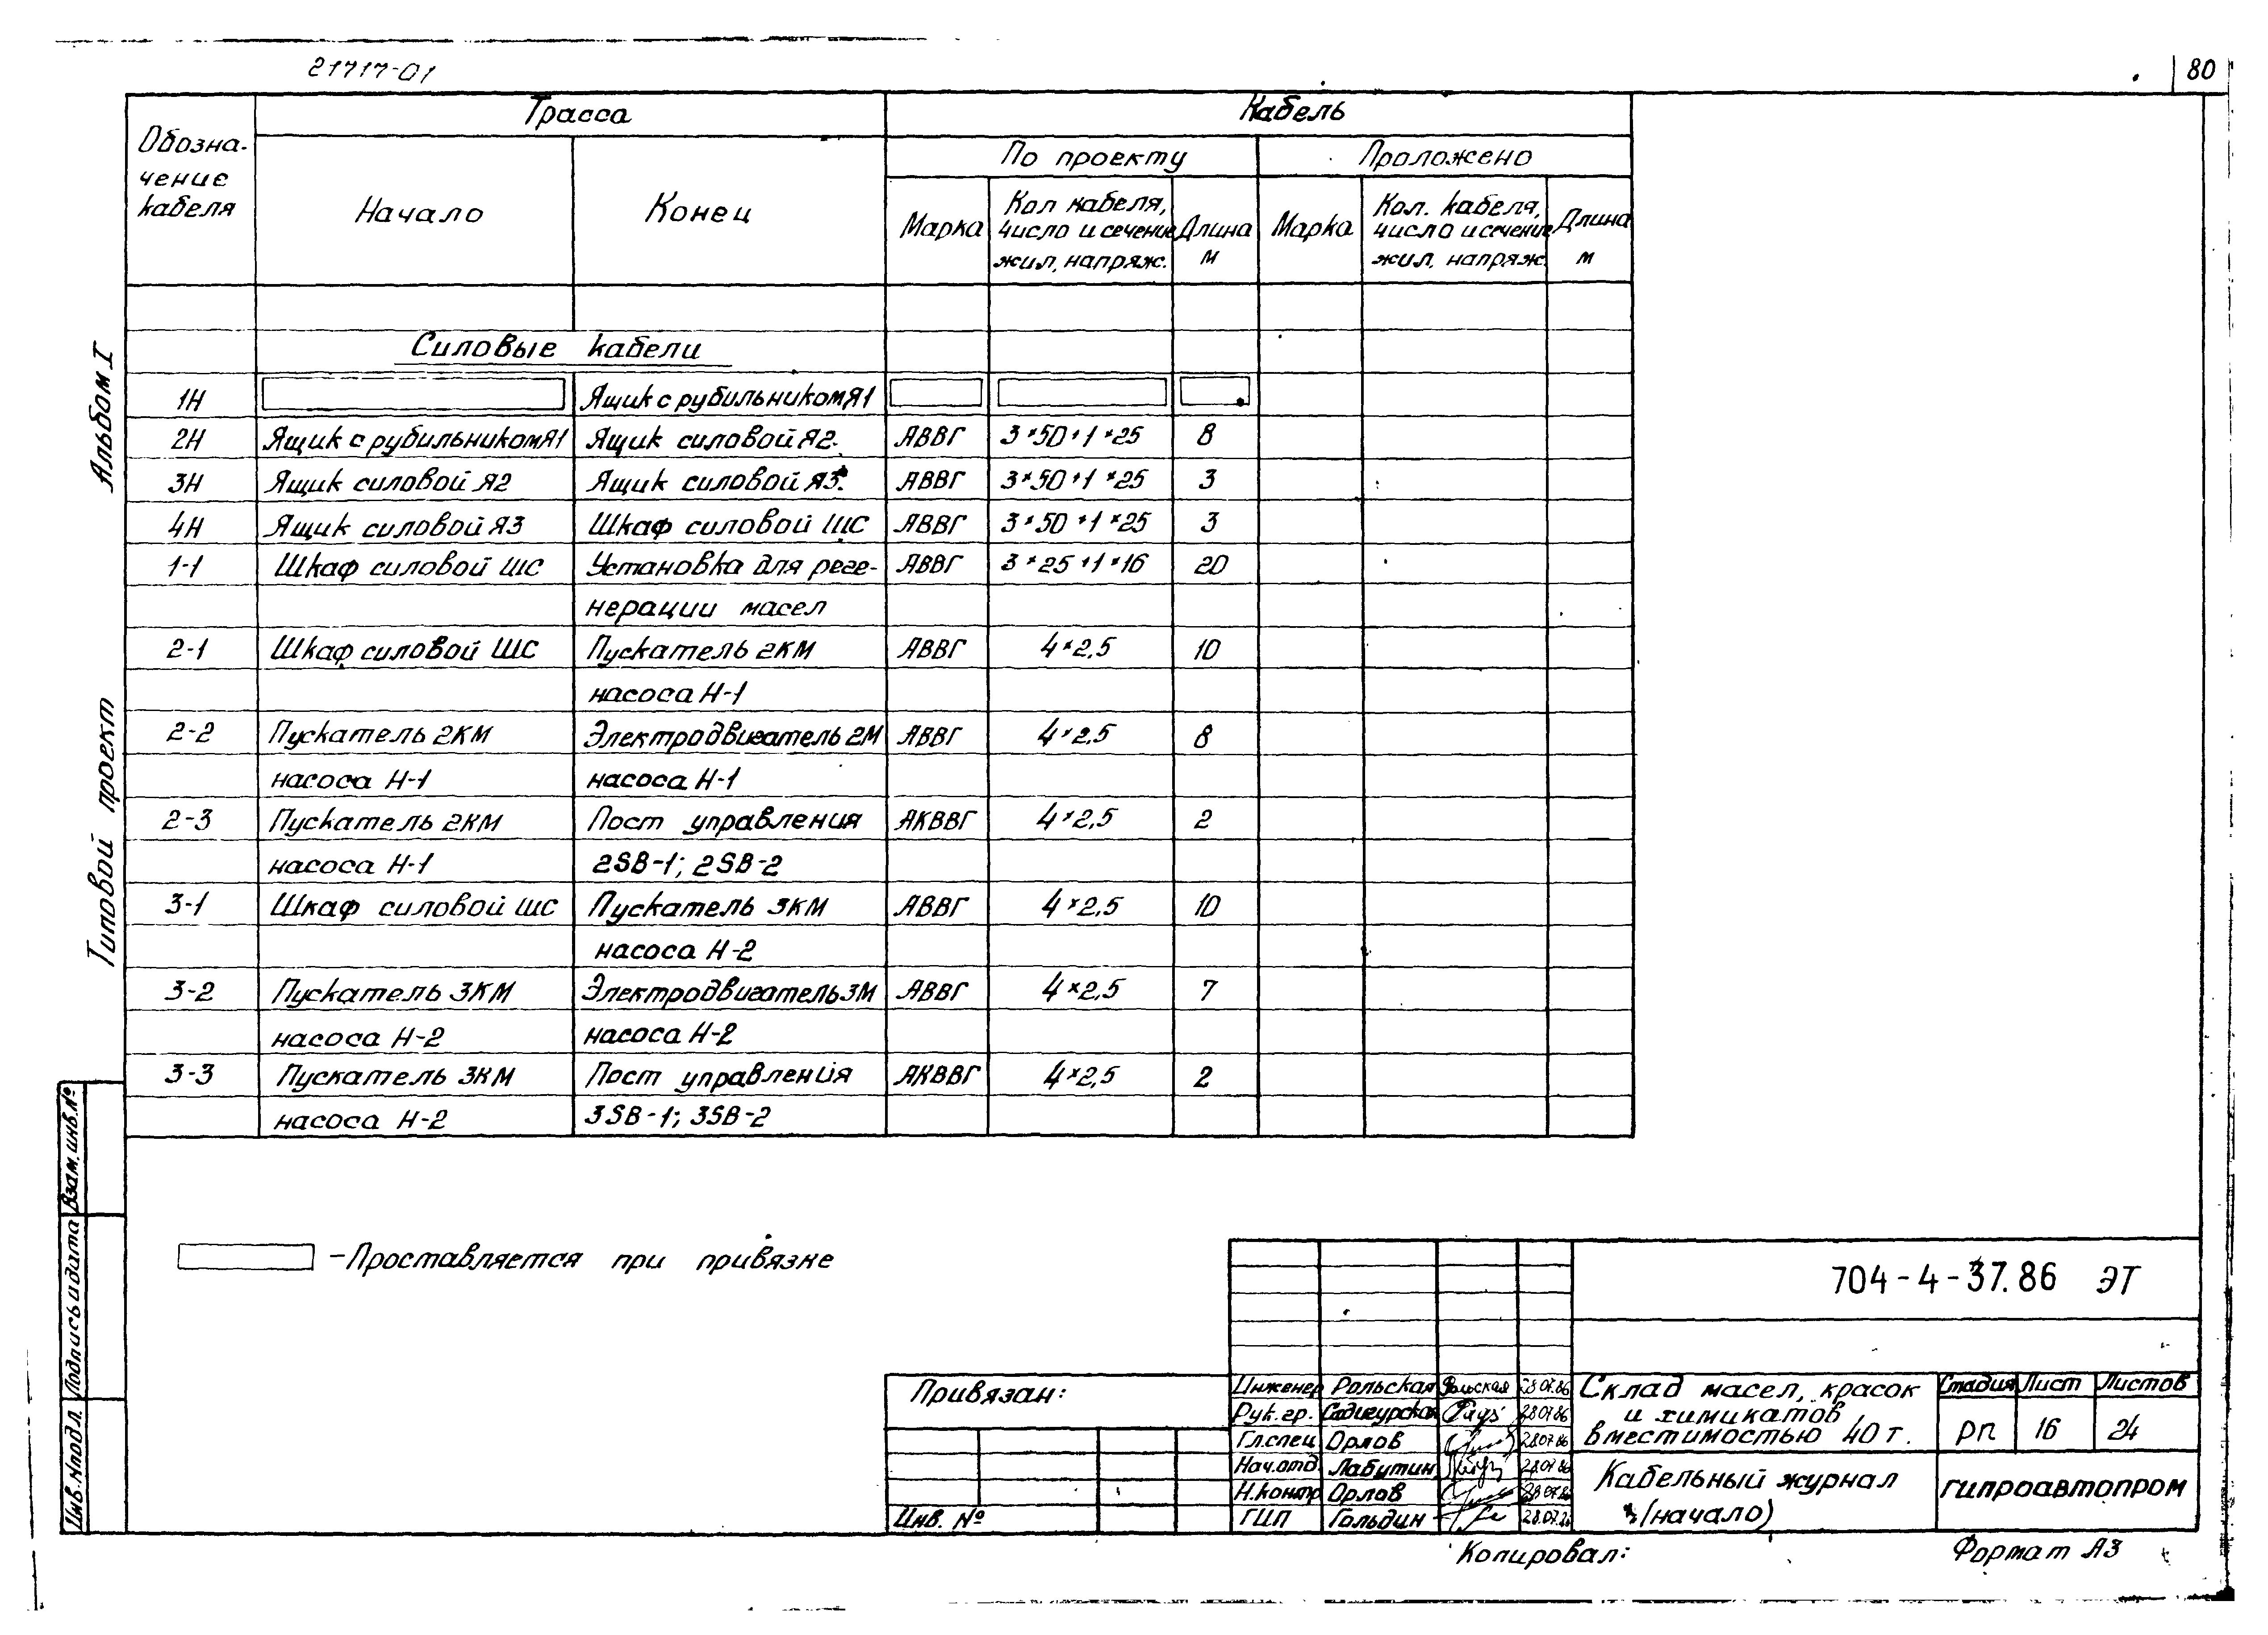 21717-01
80
Обозна-
чение
кабеля
Трасса
Кабель
Начало
Конец
По проекту
Проложено
Марка
Кол кабеля,
число и сечение
жил, напряж.
Длина
м
Марка
Кол. кабеля,
число и сечение
жил, напряж.
Длина
м
Силовые кабели
1Н Ящик с рубильником Я1
2Н Ящик с рубильником Я1 Ящик силовой Я2. АВВГ 3×50+1×25 8
3Н Ящик силовой Я2 Ящик силовой Я3. АВВГ 3×50+1×25 3
4Н Ящик силовой Я3 Шкаф силовой ШС АВВГ 3×50+1×25 3
1-1 Шкаф силовой ШС Установка для реге- АВВГ 3×25+1×16 20
нерации масел
2-1 Шкаф силовой ШС Пускатель 2КМ АВВГ 4×2,5 10
насоса Н-1
2-2 Пускатель 2КМ Электродвигатель 2М АВВГ 4×2,5 8
насоса Н-1 насоса Н-1
2-3 Пускатель 2КМ Пост управления АКВВГ 4×2,5 2
насоса Н-1 2SB-1; 2SB-2
3-1 Шкаф силовой ШС Пускатель 3КМ АВВГ 4×2,5 10
насоса Н-2
3-2 Пускатель 3КМ Электродвигатель 3М АВВГ 4×2,5 7
насоса Н-2 насоса Н-2
3-3 Пускатель 3КМ Пост управления АКВВГ 4×2,5 2
насоса Н-2 3SB-1; 3SB-2
Альбом I
Типовой проект
Взам. инв. №
Подпись и дата
Инв. № подл.
– Проставляется при привязке
704-4-37.86 ЭТ
Привязан:
Инв. №
Инженер Рольская Рольская 28.07.86
Рук. гр. Садигурская 28.07.86
Гл. спец Орлов 28.07.86
Нач. отд. Лабутин 28.07.86
Н. контр Орлов 28.07.86
ГИП Гольдин 28.07.86
Склад масел, красок
и химикатов
вместимостью 40 т.
Стадия Лист Листов
РП 16 24
Кабельный журнал
(начало)
гипроавтопром
Копировал:
Формат А3